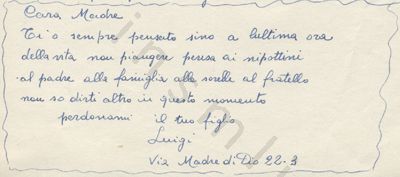 Cara Madre
Ti o sempre pensato sino a lultima ora
della vita non piangere pensa ai nipottini
al padre alla famiglia alla sorella al fratello
non so dirti altro in questo momento
perdonami il tuo figlio
Luigi
Via Madre di Dio 22-3